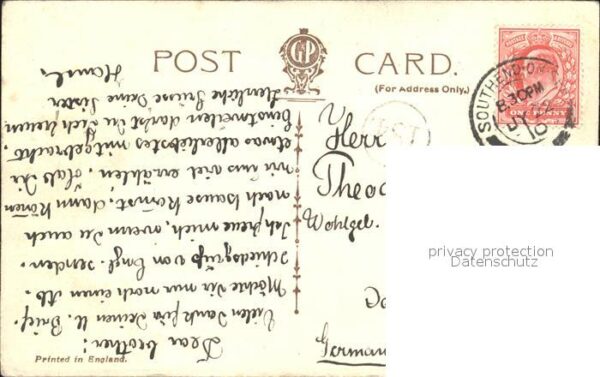 POST CARD.
GP
(For Address Only.)
SOUTHEND-O
8.30PM
JY
10
ONE PENNY
Herr
Theod
Wohlgel.
Germany
Printed in England.
privacy protection
Datenschutz
Dear brother!
Vielen Dank für Deinen lb. Brief.
Möchte Dir nun noch einen Ab-
schiedsgruß von Engl. senden.
Ich freue mich, wenn Du auch
nach Hause kommst, dann können
wir uns viel erzählen. Hab Dir
etwas allerliebstes mitgebracht,
einstweilen darfst Du Dich freuen
Herzliche Grüsse Deine Sister